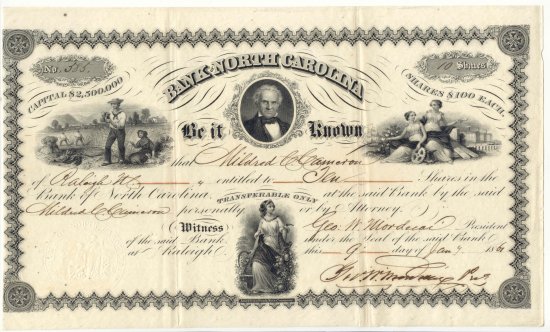 No. 555
Shares
CAPITAL $2,500,000
BANK OF NORTH CAROLINA
SHARES $100 EACH.
Be it Known
that Mildred C Cameron
of Raleigh N.C. entitled to Ten Shares in the
Bank of North Carolina. TRANSFERABLE ONLY at the said Bank by the said
Mildred C Cameron personally or by Attorney.
Witness Geo. W. Mordecai President
of the said Bank under the Seal of the said Bank
at Raleigh this 9 day of Jany. 186
Geo W Mordecai Pres